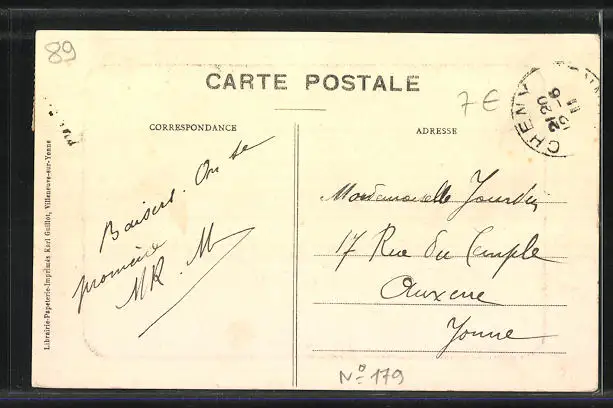 89
CARTE POSTALE
7 €
CHENY
15 20
21 -9
CORRESPONDANCE
ADRESSE
Baisers. On se
promène
MR. M
Mademoiselle Jourdin
17 Rue du Temple
Auxerre
Yonne
N° 179
Librairie-Papeterie-Imprimés Karl Guillot, Villeneuve-sur-Yonne